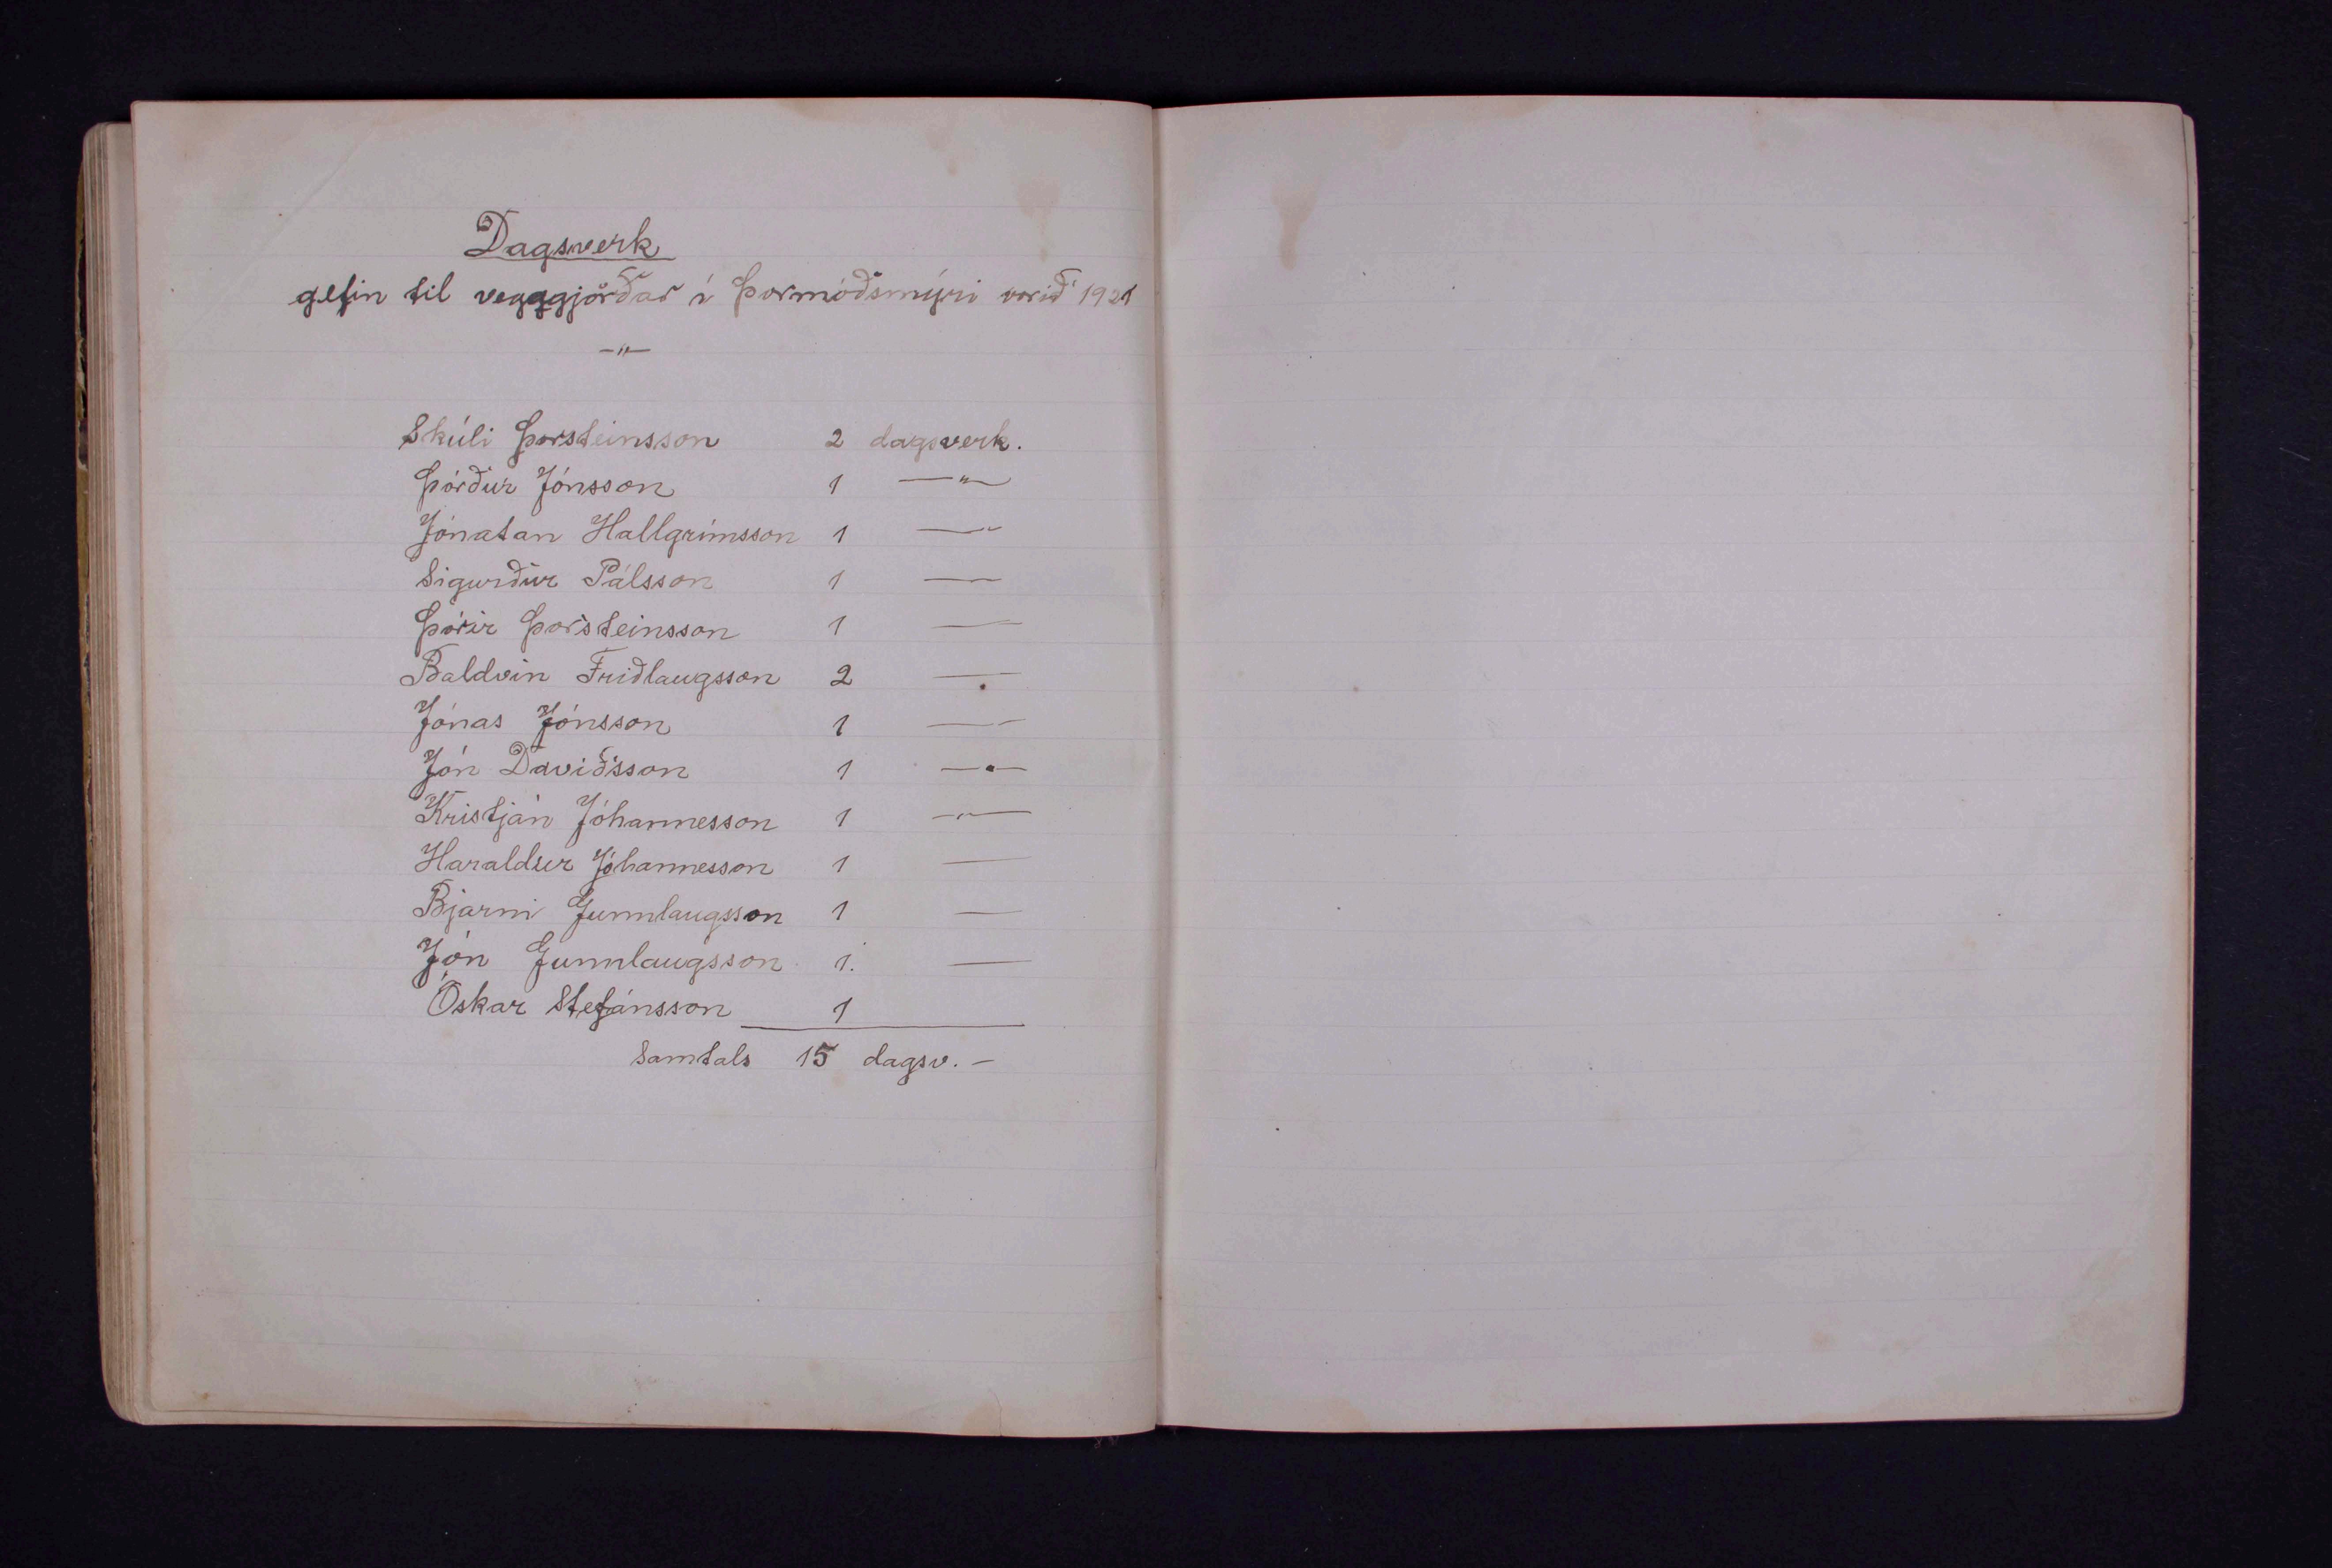 Dagsverk
gefin til vegagjörðar í Þormóðsmýri vorið 1921
—"—
Skúli Þorsteinsson 2 dagsverk.
Þórður Jónsson 1 —"—
Jónatan Hallgrímsson 1 —"—
Sigurður Pálsson 1 —
Þórir Þorsteinsson 1 —
Baldvin Friðlaugsson 2 —
Jónas Jónsson 1 —
Jón Davíðsson 1 —"—
Kristján Jóhannesson 1 —"—
Haraldur Jóhannesson 1 —
Bjarni Gunnlaugsson 1 —
Jón Gunnlaugsson 1. —
Óskar Stefánsson 1
Samtals 15 dagsv. –